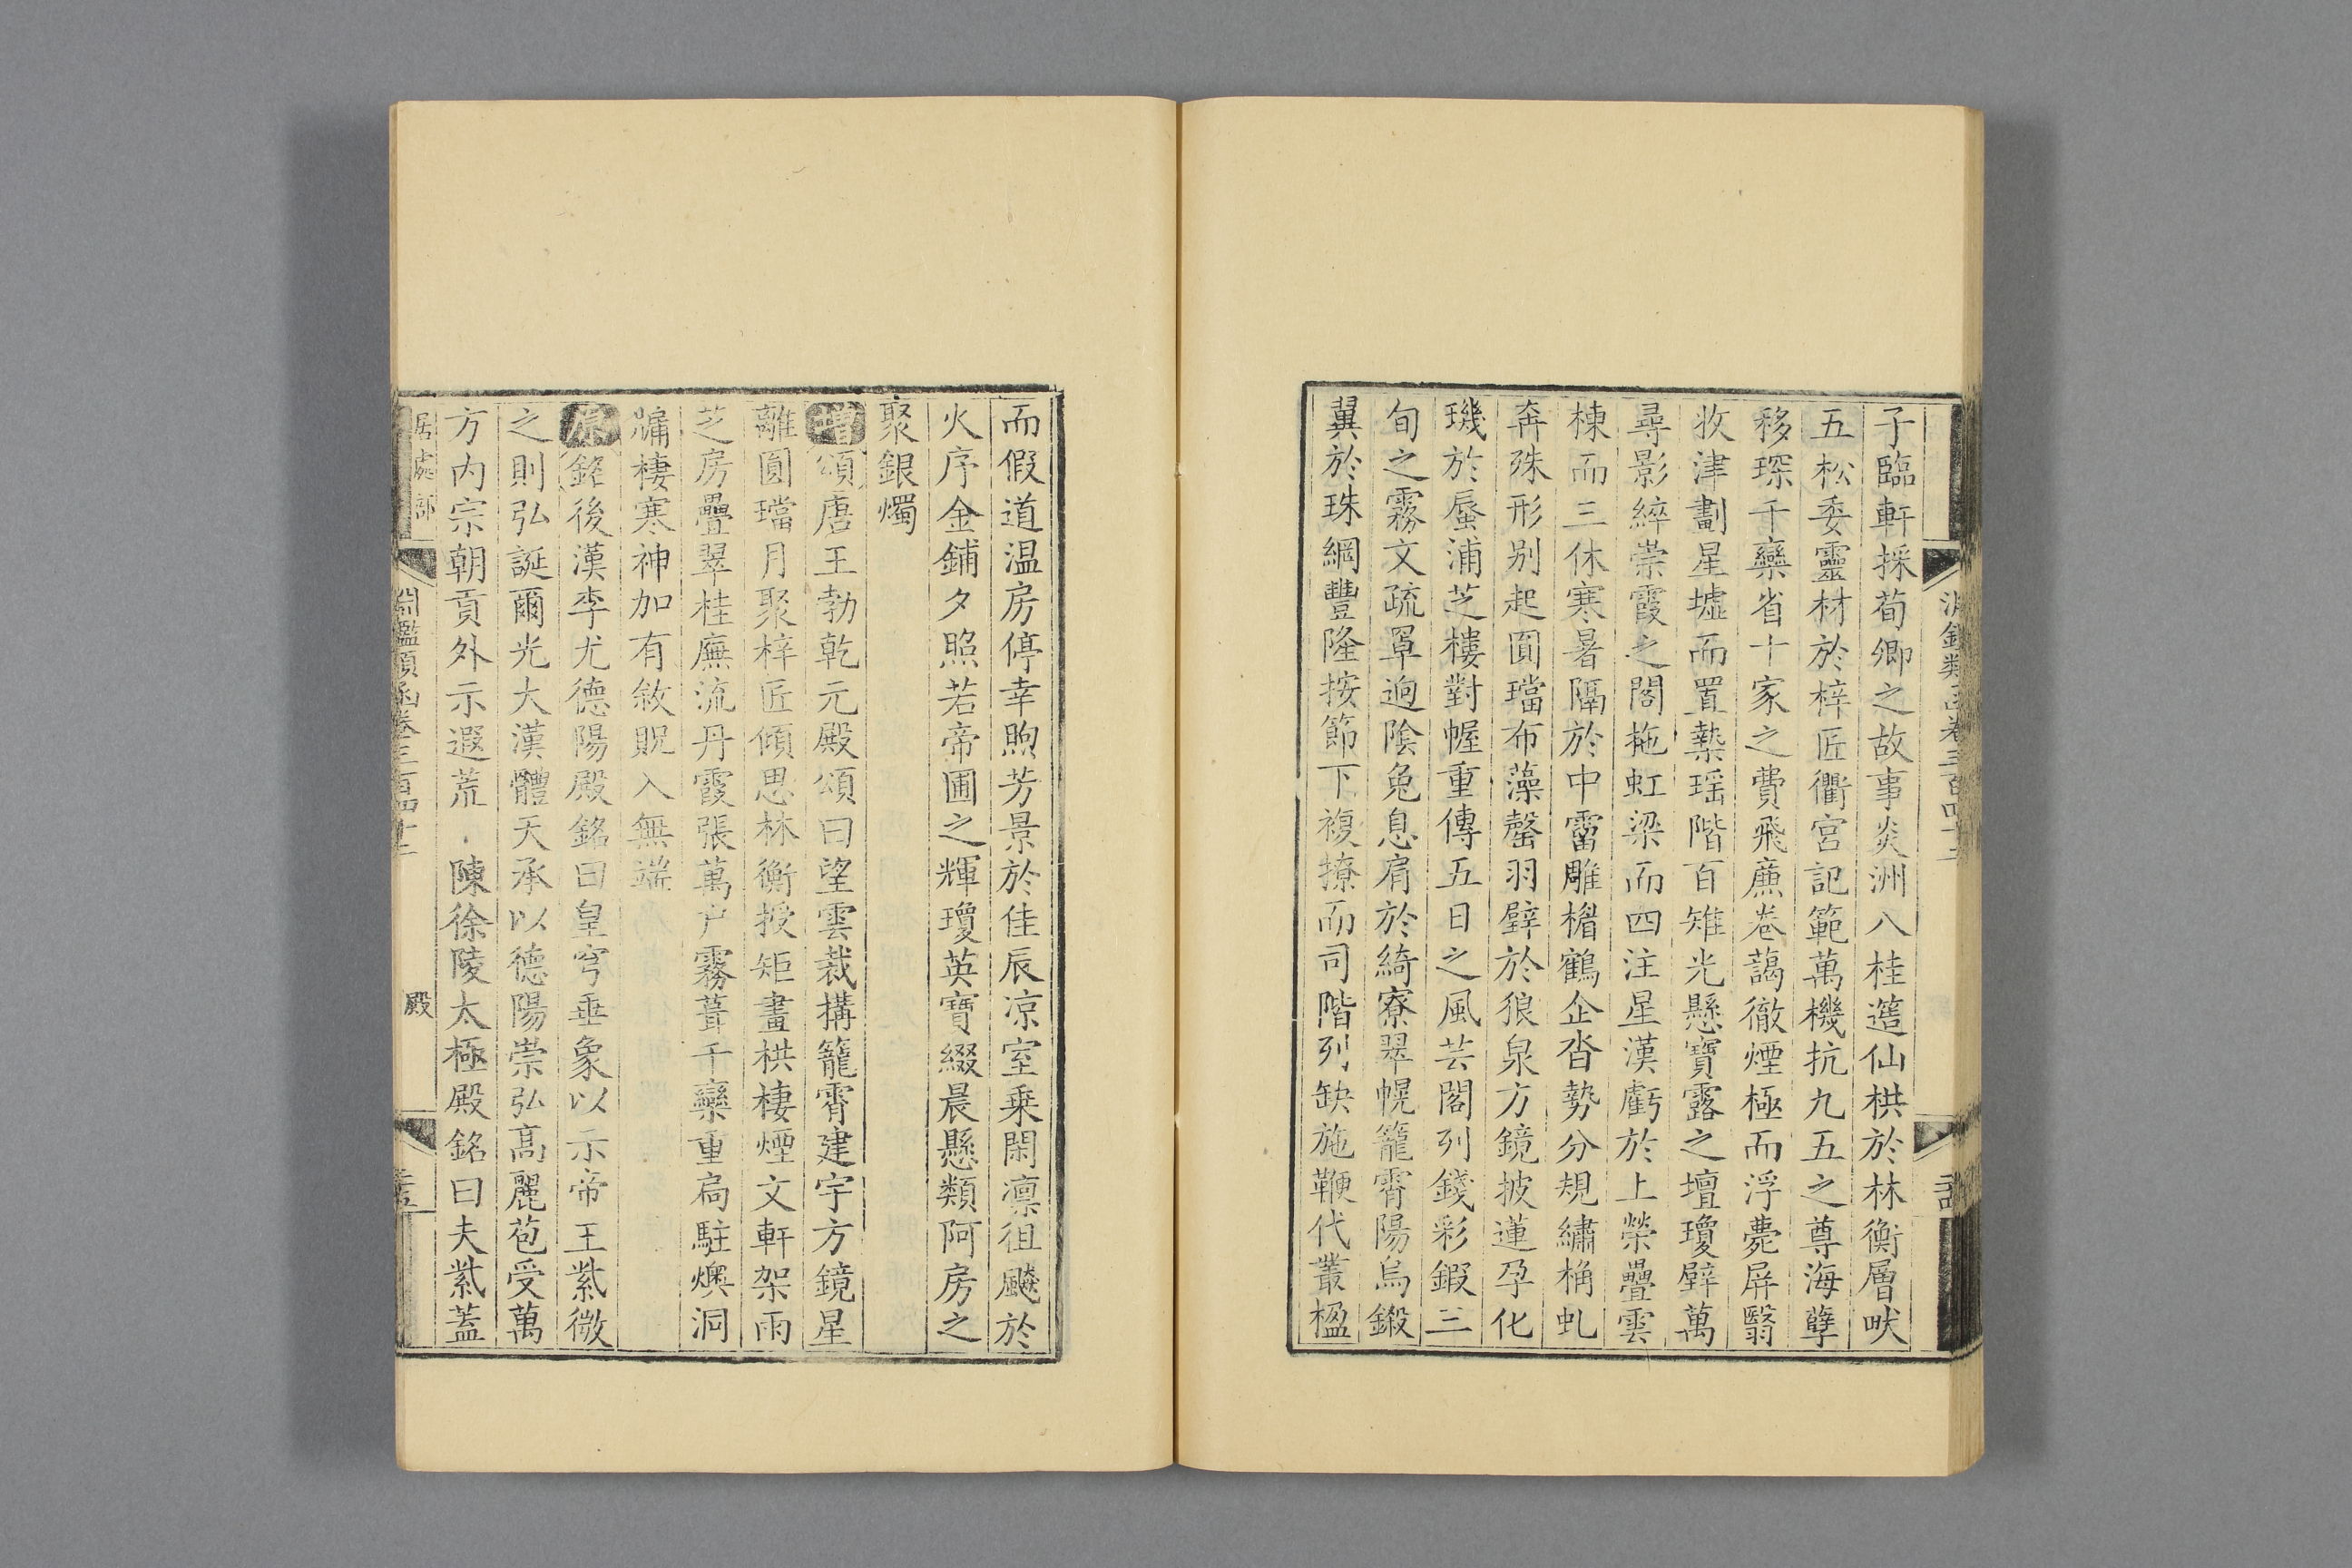 子臨軒採荀卿之故事炎洲八桂簉仙栱於林衡層畎
五松委靈材於梓匠衢宮記範萬機抗九五之尊海孽
移琛千欒省十家之費飛廉卷藹徹煙極而浮甍屏翳
收津劃星墟而置槷瑶階百雉光懸寶露之壇瓊壁萬
尋影綷崇霞之閣拖虹梁而四注星漢虧於上榮疊雲
棟而三休寒暑隔於中霤雕楶鶴企沓勢分規繡桷虬
奔殊形别起圓璫布藻罄羽璧於狼泉方鏡披蓮孕化
璣於蜃浦芝樓對幄重傳五日之風芸閣列錢彩鍜三
旬之霧文疏罩逈陰兔息肩於綺寮翠幌籠霄陽烏鎩
翼於珠綱豐隆按節下複撩而司階列缺施鞭代叢楹
而假道温房停幸煦芳景於佳辰凉室乗閑凛徂飈於
火序金鋪夕照若帝圃之輝瓊英寶綴晨懸類阿房之
聚銀燭
增頌唐王勃乾元殿頌曰望雲裁構籠霄建宇方鏡星
離圓璫月聚梓匠傾思林衡授矩畫栱棲煙文軒架雨
芝房疊翠桂廡流丹霞張萬户霧葺千欒重扃駐燠洞
牖棲寒神加有敘貺入無端
原銘後漢李尤德陽殿銘曰皇穹垂象以示帝王紫微
之則弘誕爾光大漢體天承以德陽崇弘髙麗苞受萬
方内宗朝貢外示遐荒 陳徐陵太極殿銘曰夫紫蓋
居處部
淵鑑類函卷三百四十二
殿